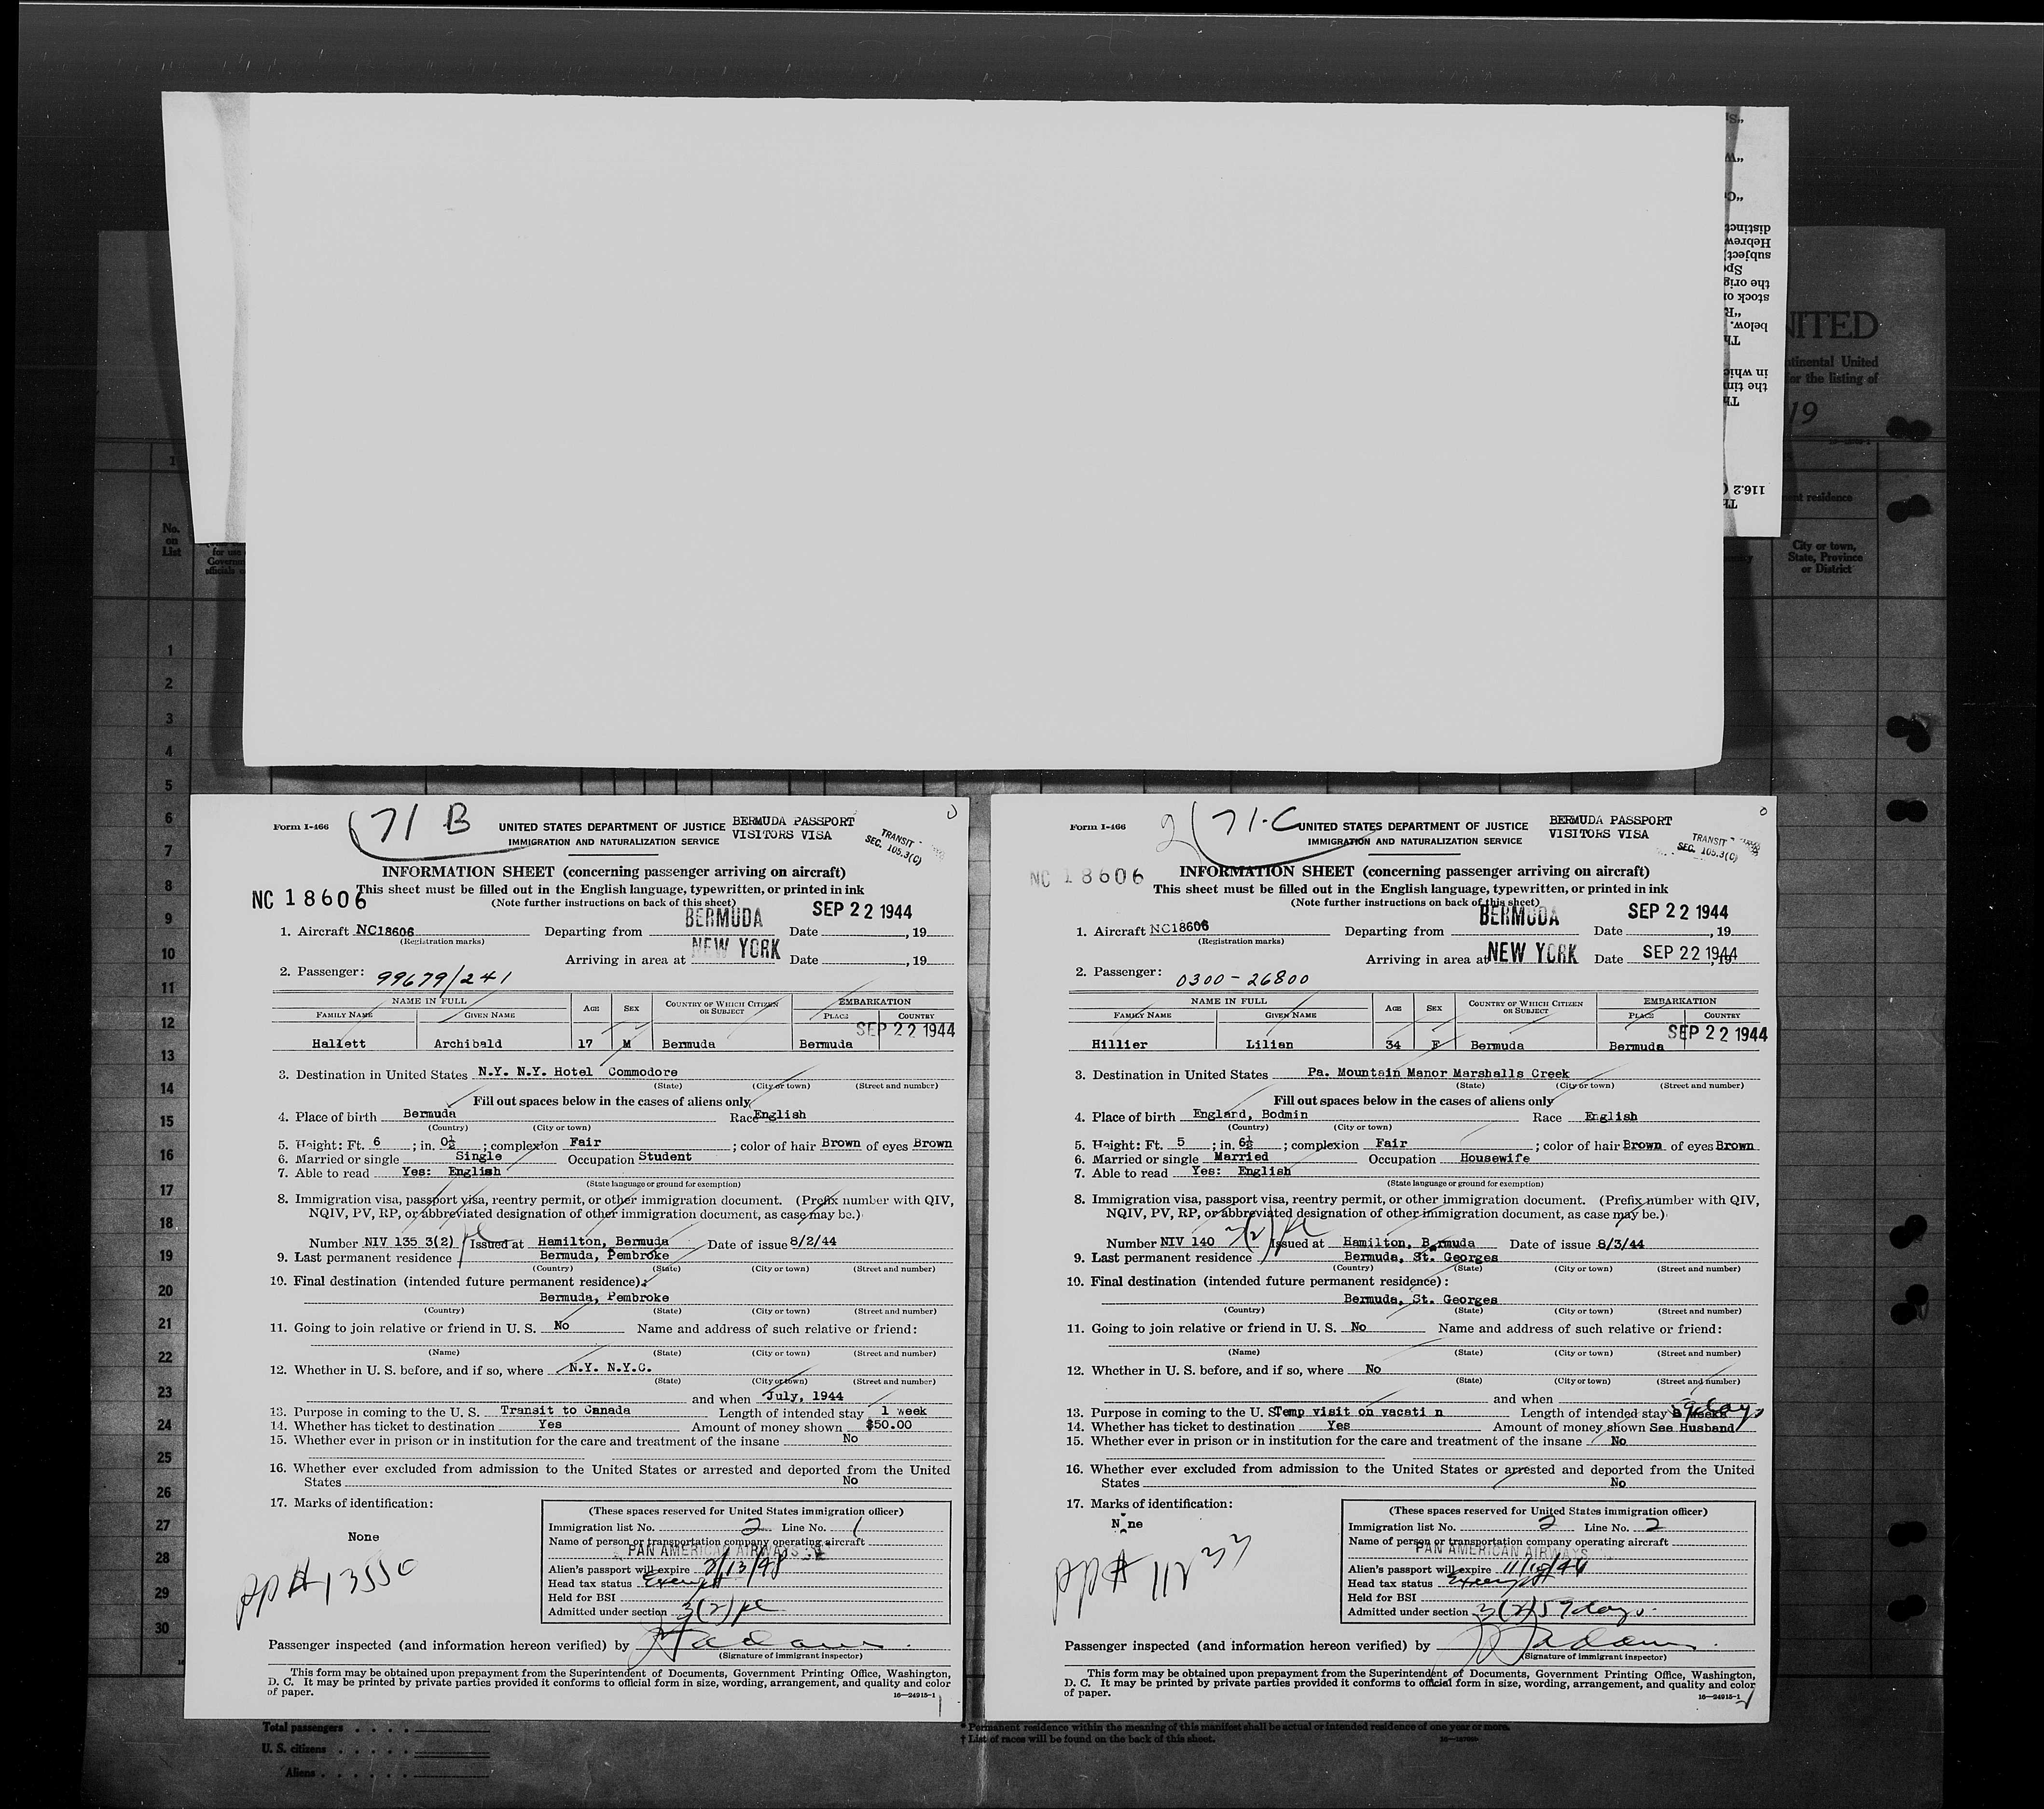 NITED
ntinental United
for the listing of
19
116.2
distinct
Hebrew
subject
the orig
stock or
below.
in whic
the tim
No.
on
List
for use
Governm
officials
nent residence
City or town,
State, Province
or District
1
2
3
4
5
6
7
8
9
10
11
12
13
14
15
16
17
18
19
20
21
22
23
24
25
26
27
28
29
30
Form I-466
71 B
UNITED STATES DEPARTMENT OF JUSTICE
IMMIGRATION AND NATURALIZATION SERVICE
BERMUDA PASSPORT
VISITORS VISA
TRANSIT
SEC. 105.3(C)
INFORMATION SHEET (concerning passenger arriving on aircraft)
This sheet must be filled out in the English language, typewritten, or printed in ink
(Note further instructions on back of this sheet)
NC 18606
BERMUDA
SEP 22 1944
1. Aircraft NC18606 Departing from Date , 19
(Registration marks)
NEW YORK
Arriving in area at Date , 19
2. Passenger: 99679/241
NAME IN FULL AGE SEX COUNTRY OF WHICH CITIZEN OR SUBJECT EMBARKATION
FAMILY NAME GIVEN NAME PLACE COUNTRY
SEP 22 1944
Hallett Archibald 17 M Bermuda Bermuda
3. Destination in United States N.Y. N.Y. Hotel Commodore
(State) (City or town) (Street and number)
Fill out spaces below in the cases of aliens only
4. Place of birth Bermuda Race English
(Country) (City or town)
5. Height: Ft. 6 ; in. 0½ ; complexion Fair ; color of hair Brown of eyes Brown
6. Married or single Single Occupation Student
7. Able to read Yes: English
(State language or ground for exemption)
8. Immigration visa, passport visa, reentry permit, or other immigration document. (Prefix number with QIV,
NQIV, PV, RP, or abbreviated designation of other immigration document, as case may be.)
Number NIV 135 3(2) Issued at Hamilton, Bermuda Date of issue 8/2/44
9. Last permanent residence Bermuda, Pembroke
(Country) (State) (City or town) (Street and number)
10. Final destination (intended future permanent residence):
Bermuda, Pembroke
(Country) (State) (City or town) (Street and number)
11. Going to join relative or friend in U. S. No Name and address of such relative or friend:
(Name) (State) (City or town) (Street and number)
12. Whether in U. S. before, and if so, where N.Y. N.Y.C.
(State) (City or town) (Street and number)
and when July, 1944
13. Purpose in coming to the U. S. Transit to Canada Length of intended stay 1 week
14. Whether has ticket to destination Yes Amount of money shown $50.00
15. Whether ever in prison or in institution for the care and treatment of the insane No
16. Whether ever excluded from admission to the United States or arrested and deported from the United
States No
17. Marks of identification:
None
pp# 13550
(These spaces reserved for United States immigration officer)
Immigration list No. 2 Line No. 1
Name of person or transportation company operating aircraft
PAN AMERICAN AIRWAYS
Alien's passport will expire 2/13/48
Head tax status Exempt
Held for BSI
Admitted under section 3(2)
Passenger inspected (and information hereon verified) by
(Signature of immigrant inspector)
This form may be obtained upon prepayment from the Superintendent of Documents, Government Printing Office, Washington,
D. C. It may be printed by private parties provided it conforms to official form in size, wording, arrangement, and quality and color
of paper.
16—24915-1
1
Form I-466
2
71-C
UNITED STATES DEPARTMENT OF JUSTICE
IMMIGRATION AND NATURALIZATION SERVICE
BERMUDA PASSPORT
VISITORS VISA
TRANSIT
SEC. 105.3(C)
INFORMATION SHEET (concerning passenger arriving on aircraft)
NC 18606
This sheet must be filled out in the English language, typewritten, or printed in ink
(Note further instructions on back of this sheet)
BERMUDA
SEP 22 1944
1. Aircraft NC18606 Departing from Date , 19
(Registration marks)
Arriving in area at NEW YORK Date SEP 22 1944 , 19
2. Passenger: 0300-26800
NAME IN FULL AGE SEX COUNTRY OF WHICH CITIZEN OR SUBJECT EMBARKATION
FAMILY NAME GIVEN NAME PLACE COUNTRY
SEP 22 1944
Hillier Lilian 34 F Bermuda Bermuda
3. Destination in United States Pa. Mountain Manor Marshalls Creek
(State) (City or town) (Street and number)
Fill out spaces below in the cases of aliens only
4. Place of birth England, Bodmin Race English
(Country) (City or town)
5. Height: Ft. 5 ; in. 6½ ; complexion Fair ; color of hair Brown of eyes Brown
6. Married or single Married Occupation Housewife
7. Able to read Yes: English
(State language or ground for exemption)
8. Immigration visa, passport visa, reentry permit, or other immigration document. (Prefix number with QIV,
NQIV, PV, RP, or abbreviated designation of other immigration document, as case may be.)
Number NIV 140 3(2) Issued at Hamilton, Bermuda Date of issue 8/3/44
9. Last permanent residence Bermuda, St. Georges
(Country) (State) (City or town) (Street and number)
10. Final destination (intended future permanent residence):
Bermuda, St. Georges
(Country) (State) (City or town) (Street and number)
11. Going to join relative or friend in U. S. No Name and address of such relative or friend:
(Name) (State) (City or town) (Street and number)
12. Whether in U. S. before, and if so, where No
(State) (City or town) (Street and number)
and when
13. Purpose in coming to the U. S. Temp visit on vacati n Length of intended stay days
14. Whether has ticket to destination Yes Amount of money shown See Husband
15. Whether ever in prison or in institution for the care and treatment of the insane No
16. Whether ever excluded from admission to the United States or arrested and deported from the United
States No
17. Marks of identification:
None
pp#
(These spaces reserved for United States immigration officer)
Immigration list No. 2 Line No. 2
Name of person or transportation company operating aircraft
PAN AMERICAN AIRWAYS
Alien's passport will expire
Head tax status Exempt
Held for BSI
Admitted under section 3(2) 59 days
Passenger inspected (and information hereon verified) by
(Signature of immigrant inspector)
This form may be obtained upon prepayment from the Superintendent of Documents, Government Printing Office, Washington,
D. C. It may be printed by private parties provided it conforms to official form in size, wording, arrangement, and quality and color
of paper.
16—24915-1
2
Total passengers . . . .
U. S. citizens . . . . .
Aliens . . . . . .
* Permanent residence within the meaning of this manifest shall be actual or intended residence of one year or more.
† List of races will be found on the back of this sheet.